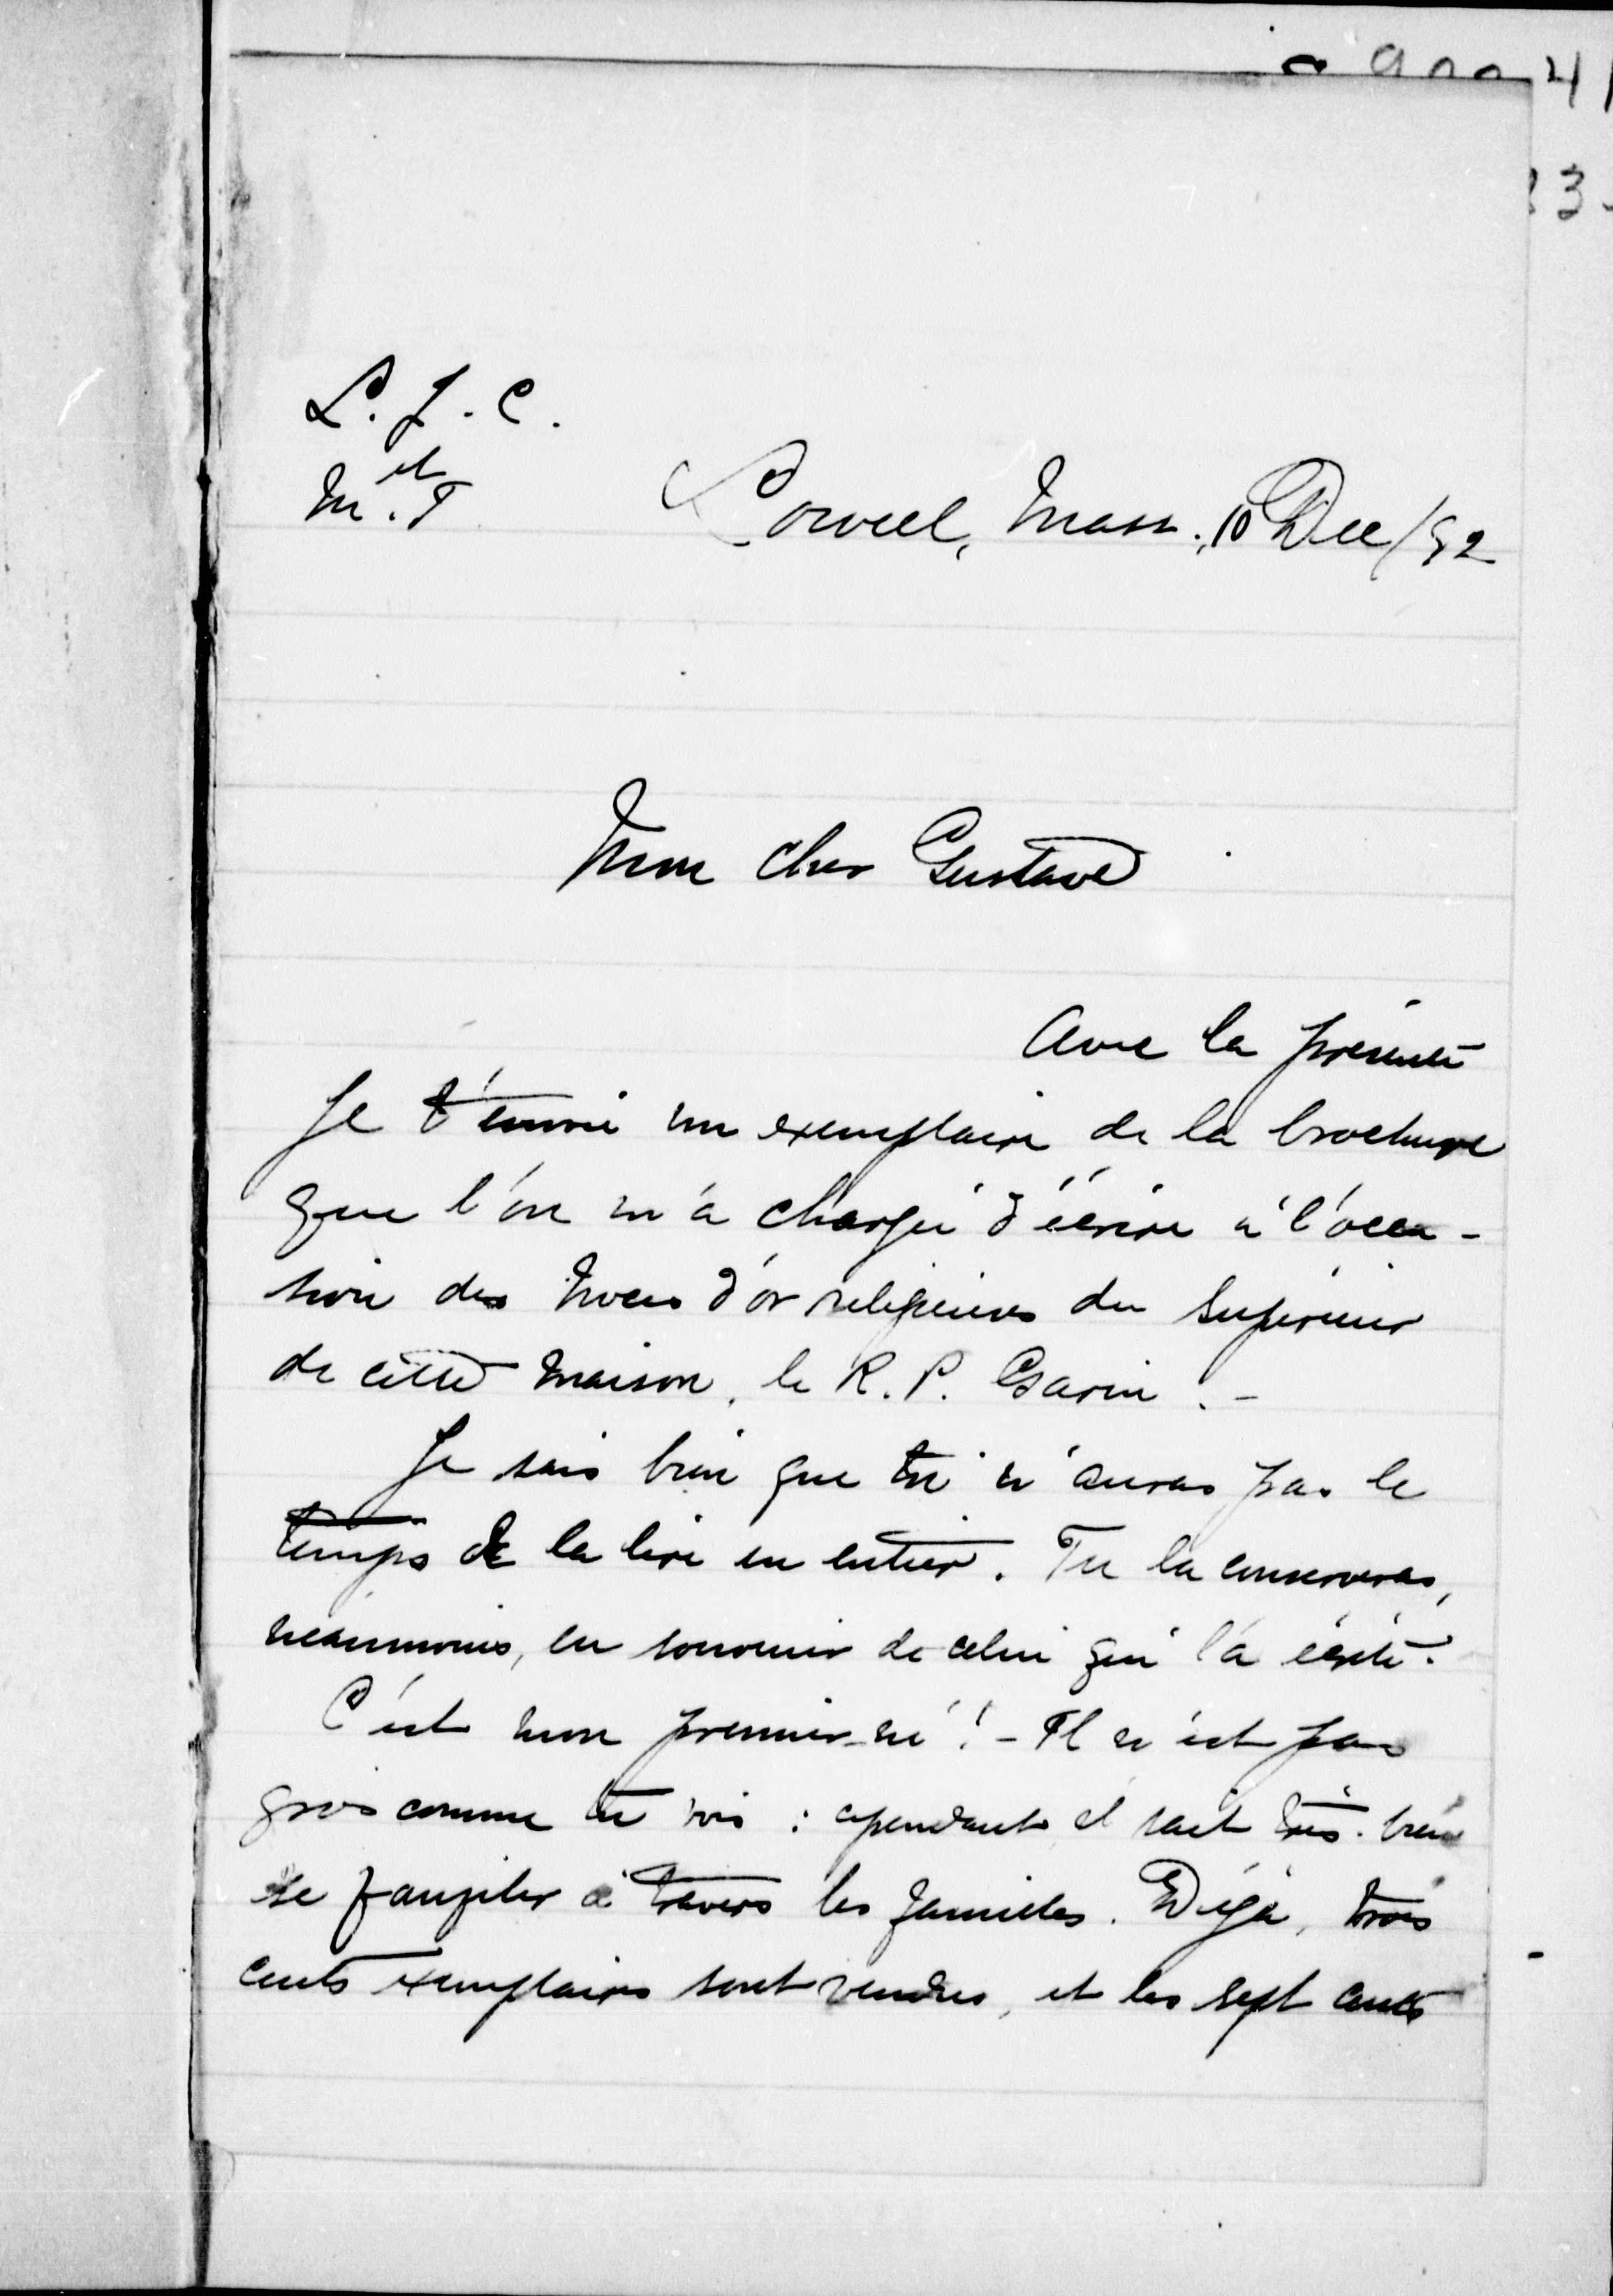 L. J. C.
et
M. I
Lowell, Mass., 10 Dec/92
Mon cher Gustave
Avec la présente
Je t'envoie un exemplaire de la brochure
que l'on m'a chargé d'écrire à l'occa-
sion des Noces d'or religieuses du Supérieur
de cette maison, le R. P. Garin. -
Je sais bien que tu n'auras pas le
temps de la lire en entier. Tu la conserveras,
néanmoins, en souvenir de celui qui l'a écrite.
C'est mon premier-né! - Il n'est pas
gros comme tu vois : cependant il sait très-bien
se faufiler à travers les familles. Déjà, trois
cents exemplaires sont vendus, et les sept cents